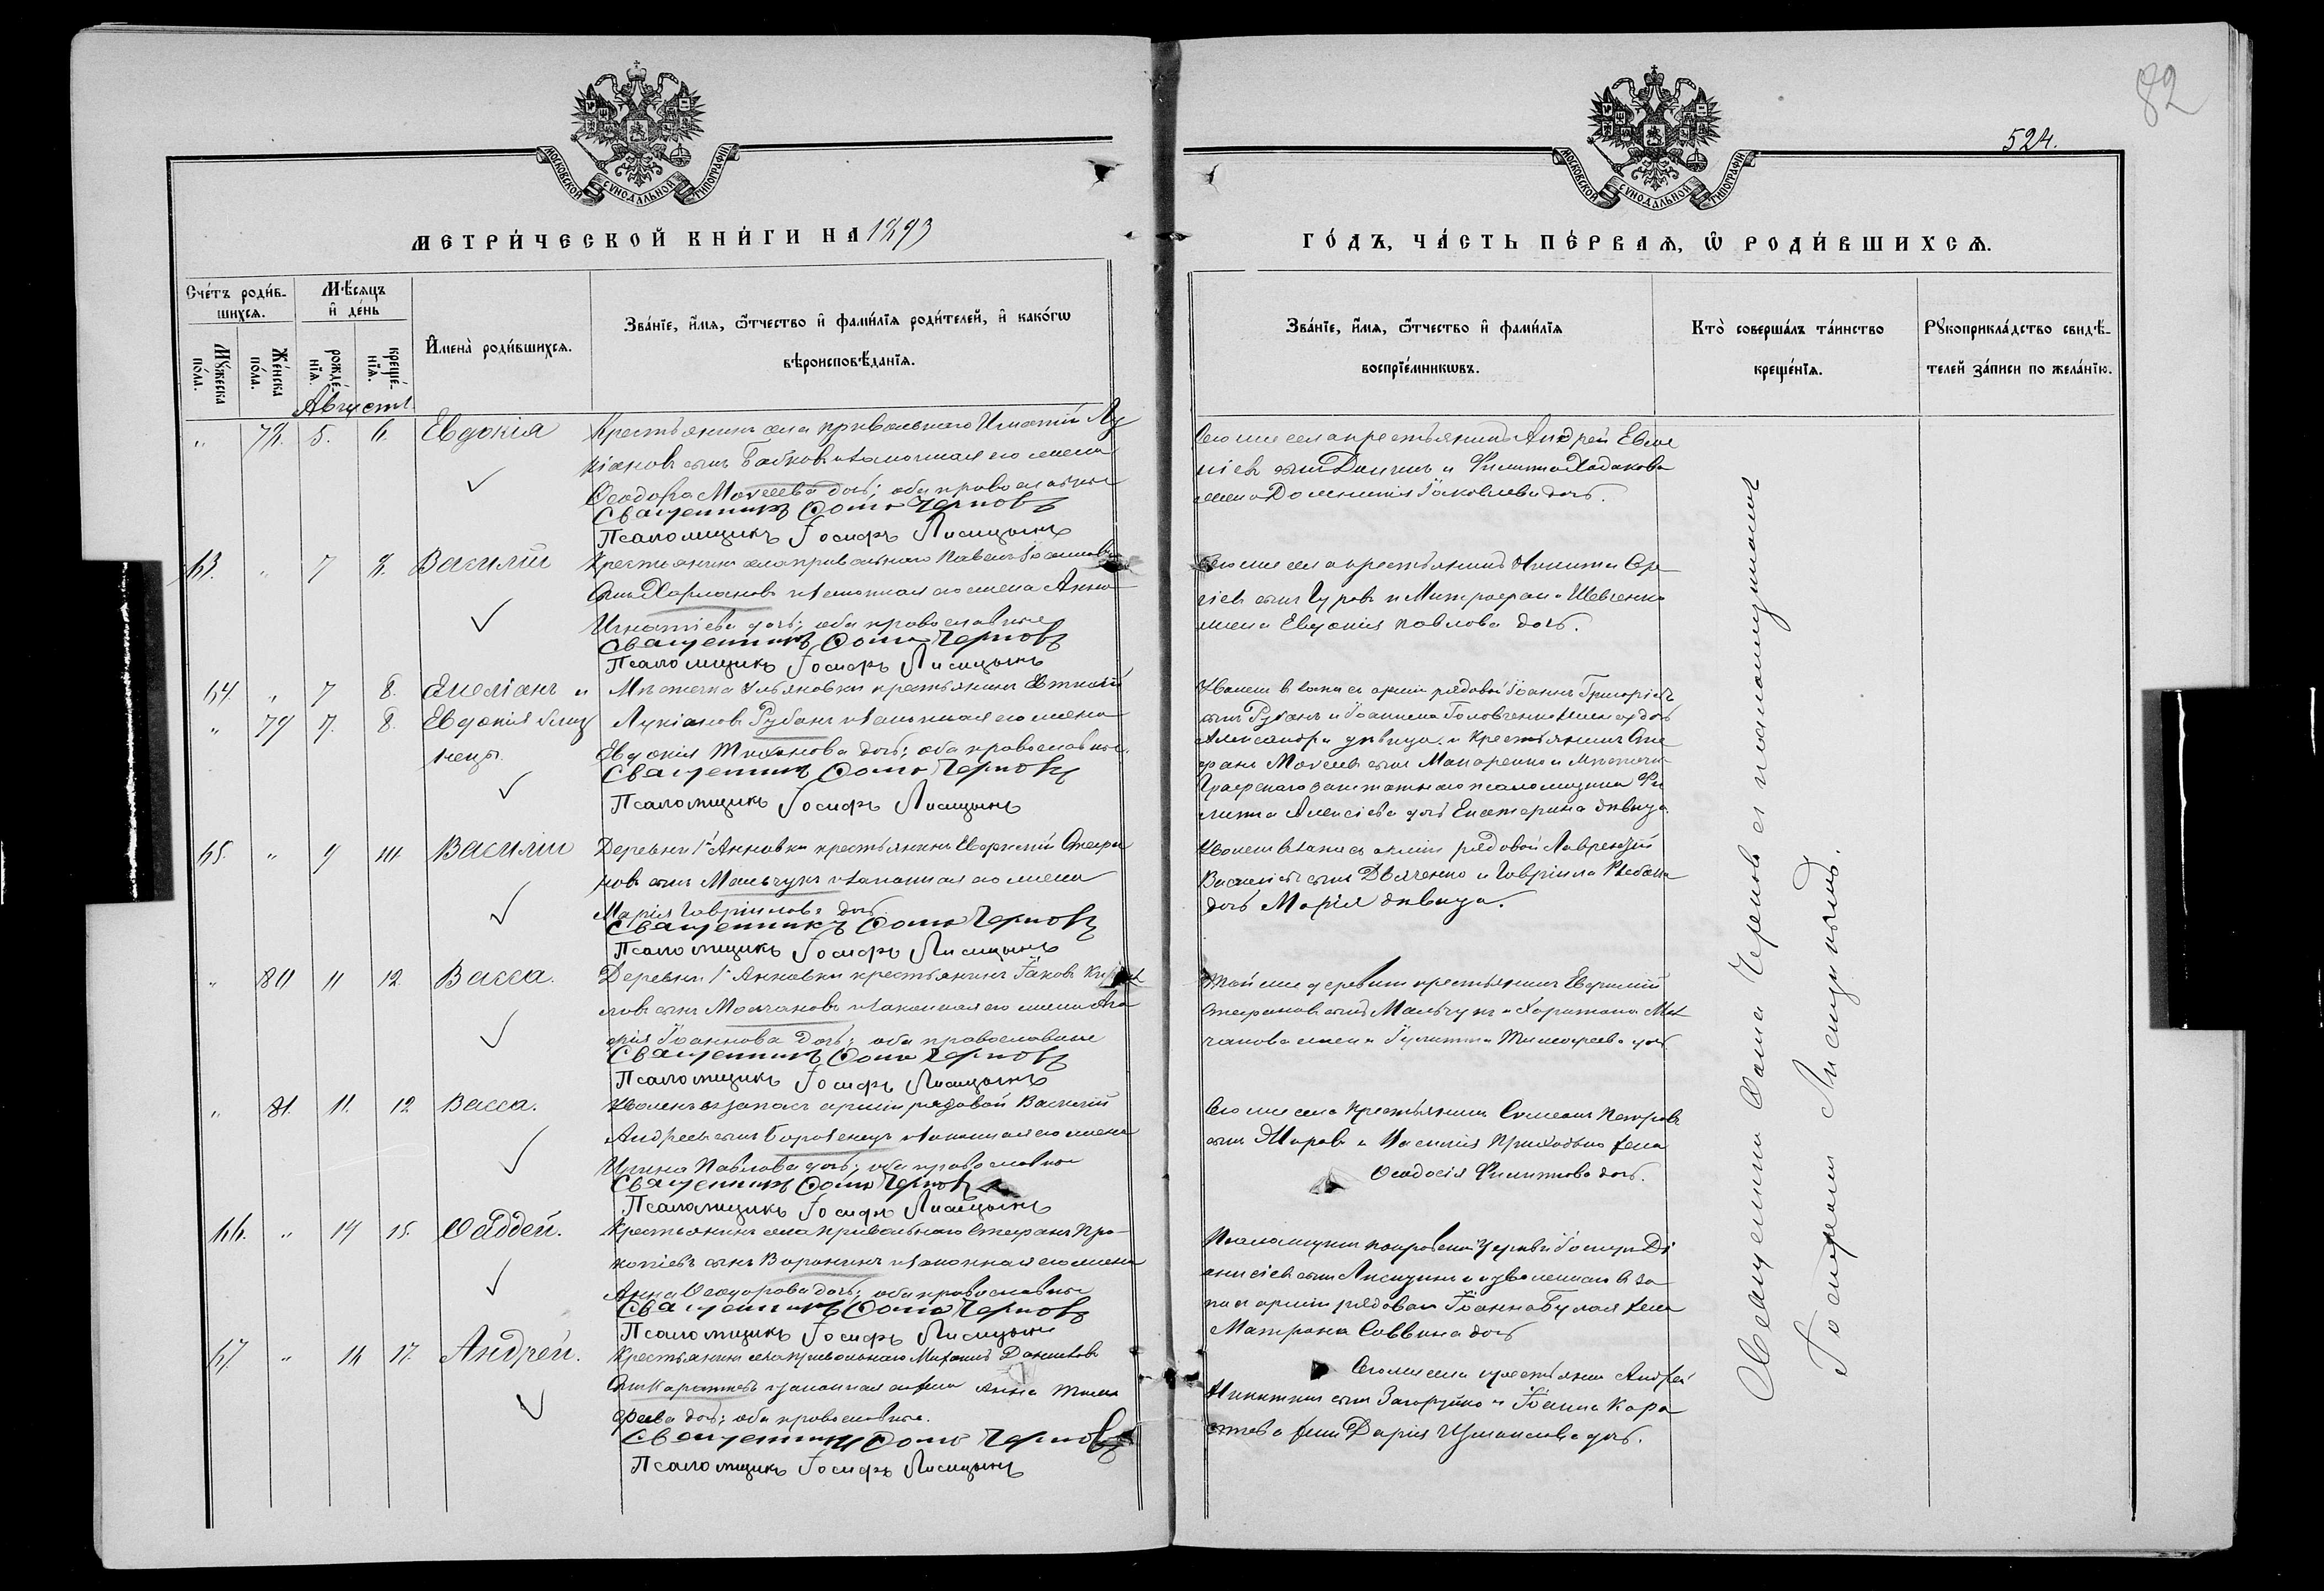 82
524.
МОСКОВСКОЙ СѴНОДАЛЬНОЙ ТИПОГРАФІИ
МОСКОВСКОЙ СѴНОДАЛЬНОЙ ТИПОГРАФІИ
МЕТРИ́ЧЕСКОЙ КНИ́ГИ НА 1893
ГО́ДЪ, ЧА́СТЬ ПЕ́РВАѦ, Ѿ РОДИ́ВШИХСѦ.
Сче́тъ роди́вшихсѧ.
Мꙋ́жеска по́ла.
Же́нска по́ла.
Мѣ́сѧцъ и҆ де́нь
рожде́нїѧ.
креще́нїѧ.
И҆мена̀ роди́вшихсѧ.
Зва́нїе, и҆́мѧ, ѻ҆́тчество и҆ фами́лїѧ роди́телей, и҆ како́гѡ вѣроисповѣ́данїѧ.
Зва́нїе, и҆́мѧ, ѻ҆́тчество и҆ фами́лїѧ воспрїе́мникѡвъ.
Кто̀ соверша́лъ та́инство креще́нїѧ.
Рꙋкоприкла́дство свидѣ́телей за́писи по жела́нїю.
Августъ.
" 78. 5. 6. Евдокія
Крестьянинъ села Привольнаго Игнатій Лу
кіановъ сынъ Бабковъ и законная его жена
Ѳеодора Моѵсеева дочь; оба православные
Священникъ Ѳома Черновъ
Псаломщикъ Іосифъ Лисицынъ
Того же села крестьянинъ Андрей
сынъ и Филиппа Ходакова
жена Домникія Іаковлева дочь.
63. " 7 8. Василій
Крестьянинъ села Привольнаго Павелъ Іоанновъ
сынъ Харлановъ и законная его жена Анна
Игнатіева дочь; оба православные
Священникъ Ѳома Черновъ
Псаломщикъ Іосифъ Лисицынъ
Того же села крестьянинъ Никита Сер
гіевъ сынъ Гуровъ и Митрофана Шевченко
жена Евдокія Павлова дочь.
64. " 7 8. Емеліанъ и
" 79 7. 8. Евдокія близ
нецы.
Мѣстечка Ульяновки крестьянинъ Евтихій
Лукіановъ Рубанъ и законная его жена
Евдокія Тихонова дочь; оба православные.
Священникъ Ѳома Черновъ
Псаломщикъ Іосифъ Лисицынъ
Уволен. въ запасъ арміи рядовой Іоаннъ Григоріевъ
сынъ Рубанъ и Іоанна Головченко дочь
Александра дѣвица и крестьянинъ Сте
фанъ Моѵсеевъ сынъ Макаренко и мѣстечка
заштатнаго псаломщика Фи
липпа Алексіева дочь Екатерина дѣвица.
65. " 9 10. Василій
Деревни 1й Анновки крестьянинъ Евфимій Стефа
новъ сынъ Мельчукъ и законная его жена
Марія Гавріилова дочь.
Священникъ Ѳома Черновъ
Псаломщикъ Іосифъ Лисицынъ
Уволен. въ запасъ арміи рядовой Лаврентій
Василіевъ сынъ Дьяченко и Гавріила
дочь Марія дѣвица.
" 80 11 12. Васса.
Деревни 1й Анновки крестьянинъ Іаковъ
ловъ сынъ Молчановъ и законная его жена Ага
фія Іоаннова дочь; оба православные
Священникъ Ѳома Черновъ
Псаломщикъ Іосифъ Лисицынъ
Той же деревни крестьянинъ Евфимій
Стефановъ сынъ Мельчукъ и Харитона Мол
чанова жена Іулитта Тимофеева дочь.
" 81. 11. 12 Васса.
Уволенъ въ запасъ арміи рядовой Василій
Андреевъ сынъ и законная его жена
Ирина Павлова дочь; оба православные
Священникъ Ѳома Черновъ
Псаломщикъ Іосифъ Лисицынъ
Того же села крестьянинъ Симеонъ Петровъ
сынъ и Василія Приходько жена
Ѳеодосія Филиппова дочь.
66. " 14 15. Ѳаддей.
Крестьянинъ села Привольнаго Стефанъ Про
копіевъ сынъ Воронинъ и законная его жена
Анна Ѳеодорова дочь; оба православные
Священникъ Ѳома Черновъ
Псаломщикъ Іосифъ Лисицынъ
Псаломщикъ Покровской церкви Іосифъ Ді
онисіевъ сынъ Лисицынъ и уволеннаго въ за
пасъ арміи рядового Іоанна жена
Матрона Саввина дочь
67. " 16 17. Андрей.
Крестьянинъ села Привольнаго Михаилъ Даниловъ
сынъ и законная его жена Анна Тимо
феева дочь; оба православные.
Священникъ Ѳома Черновъ
Псаломщикъ Іосифъ Лисицынъ
Того же села крестьянинъ Андрей
Никитинъ сынъ Загоруйко и Іоанна Кара
жена Дарія дочь.
Священникъ Ѳома Черновъ съ псаломщикомъ
Іосифомъ Лисицынымъ.